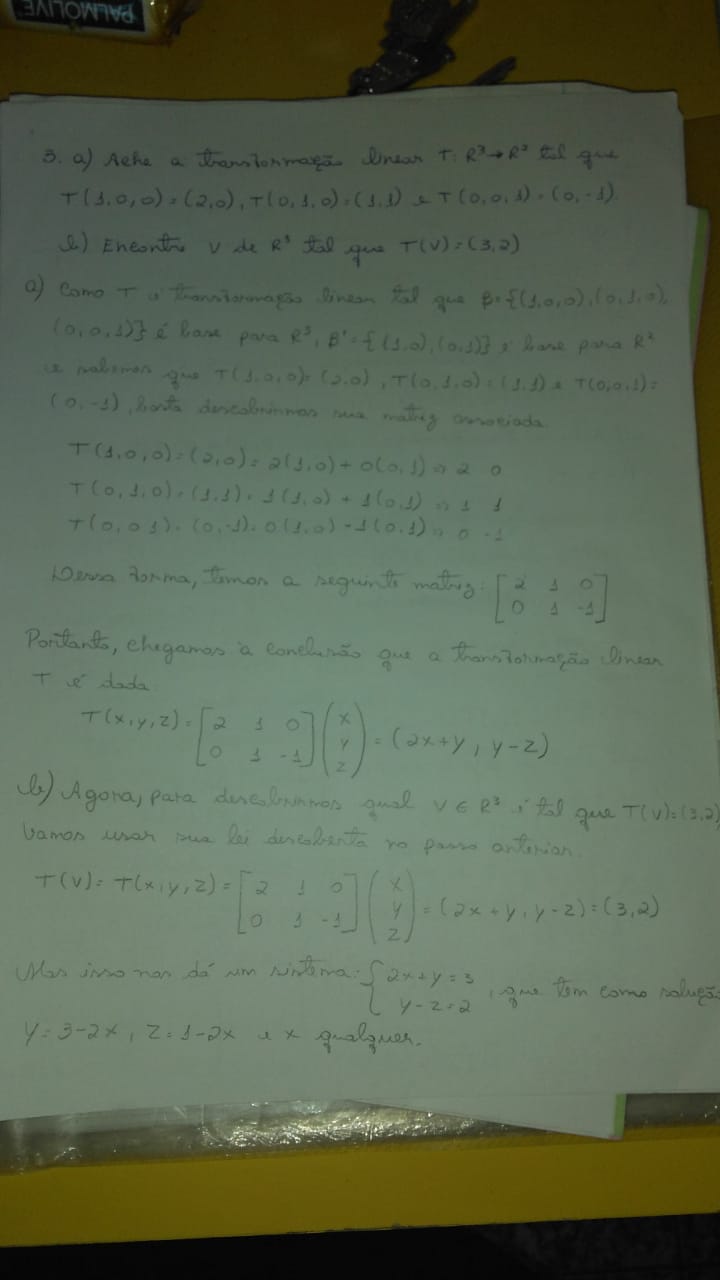 PALMOLIVE
3. a) Ache a transformação linear T: R³→R² tal que
T(1,0,0)=(2,0), T(0,1,0)=(1,1) e T(0,0,1)=(0,-1).
b) Encontre v de R³ tal que T(v)=(3,2)
a) Como T é transformação linear tal que β={(1,0,0),(0,1,0),
(0,0,1)} é base para R³, β'={(1,0),(0,1)} é base para R²
e sabemos que T(1,0,0)=(2,0), T(0,1,0)=(1,1) e T(0,0,1)=
(0,-1), basta descobrirmos sua matriz associada.
T(1,0,0)=(2,0)= 2(1,0)+0(0,1) ⇒ 2 0
T(0,1,0)=(1,1)= 1(1,0)+1(0,1) ⇒ 1 1
T(0,0,1)=(0,-1)= 0(1,0)-1(0,1) ⇒ 0 -1
Dessa forma, temos a seguinte matriz: [2 1 0
0 1 -1]
Portanto, chegamos à conclusão que a transformação linear
T é dada
T(x,y,z)= [2 1 0
0 1 -1] (x
y
z) = (2x+y, y-z)
b) Agora, para descobrirmos qual v ∈ R³ é tal que T(v)=(3,2)
vamos usar sua lei descoberta no passo anterior.
T(v)= T(x,y,z)= [2 1 0
0 1 -1] (x
y
z) = (2x+y, y-z)=(3,2)
Mas isso nos dá um sistema: {2x+y=3
y-z=2, que tem como solução
y=3-2x, z=1-2x e x qualquer.